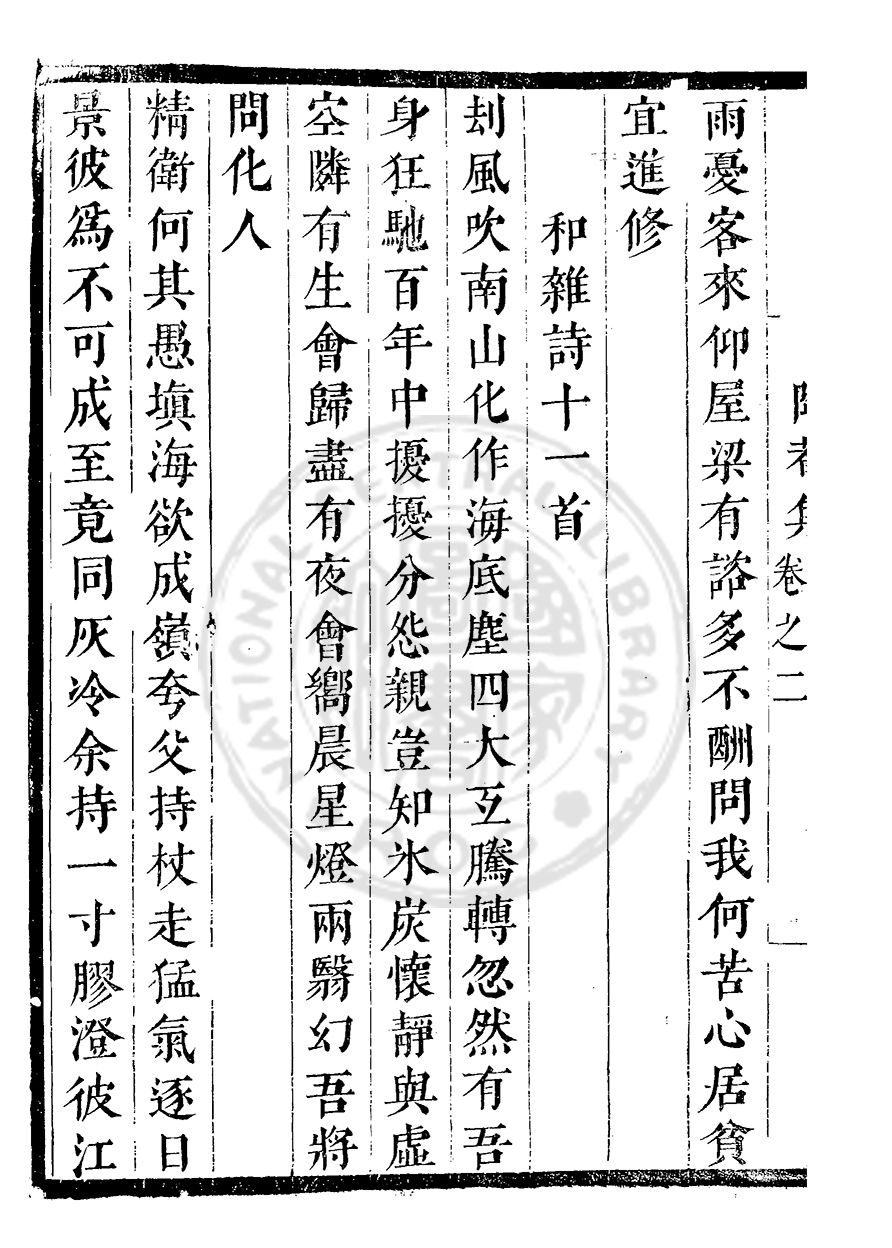 卷之二
雨憂客來仰屋梁有諮多不酬問我何苦心居貧
宜進修
和雜詩十一首
刦風吹南山化作海底塵四大互騰轉忽然有吾
身狂馳百年中擾擾分怨親豈知氷炭懷靜與虛
空隣有生會歸盡有夜會嚮晨星燈兩翳幻吾將
問化人
精衛何其愚塡海欲成嶺夸父持杖走猛氣逐日
景彼爲不可成至竟同灰冷余持一寸膠澄彼江
NATIONAL CENTRAL LIBRARY